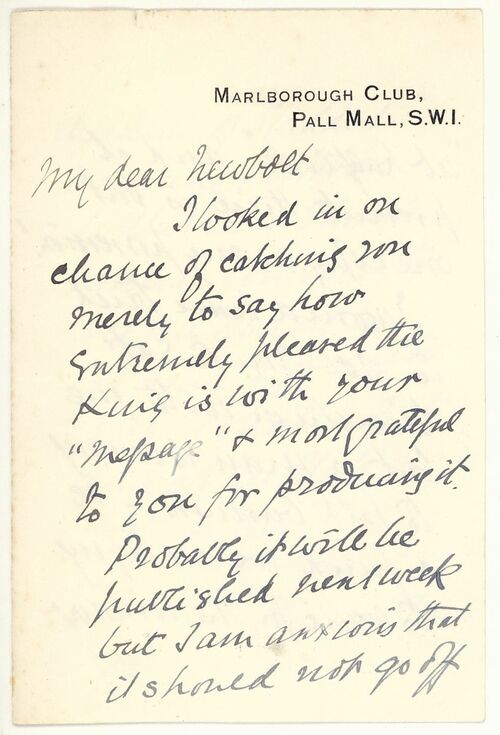 MARLBOROUGH CLUB,
PALL MALL, S.W.1.
My dear Newbolt
I looked in on
chance of catching you
merely to say how
extremely pleased the
King is with your
"Message" & most grateful
to you for producing it.
Probably it will be
published next week
but I am anxious that
it should not go off